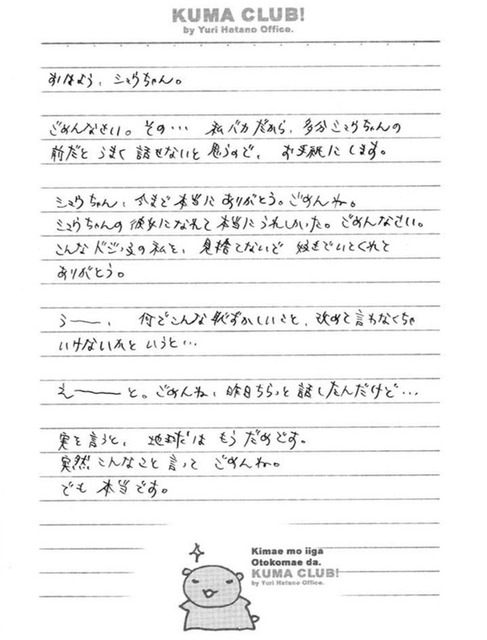 KUMA CLUB!
by Yuri Hatano Office.
おはよう、シュウちゃん。
ごめんなさい。その… 私バカだから、多分シュウちゃんの
前だと うまく 話せないと思うので、お手紙にします。
シュウちゃん、今まで本当に ありがとう。ごめんね。
シュウちゃんの彼女になれて本当にうれしかった。ごめんなさい。
こんなドジッ女の私を、見捨てないで 好きでいてくれて
ありがとう。
うー、 何でこんな恥ずかしいこと、改めて言わなくちゃ
いけないかと いうと…
えーと。ごめんね、昨日ちらっと 話したんだけど…
実を言うと、地球は もうだめです。
突然こんなこと言って ごめんね。
でも 本当です。
Kimae mo iiga
Otokomae da.
KUMA CLUB!
by Yuri Hatano Office.